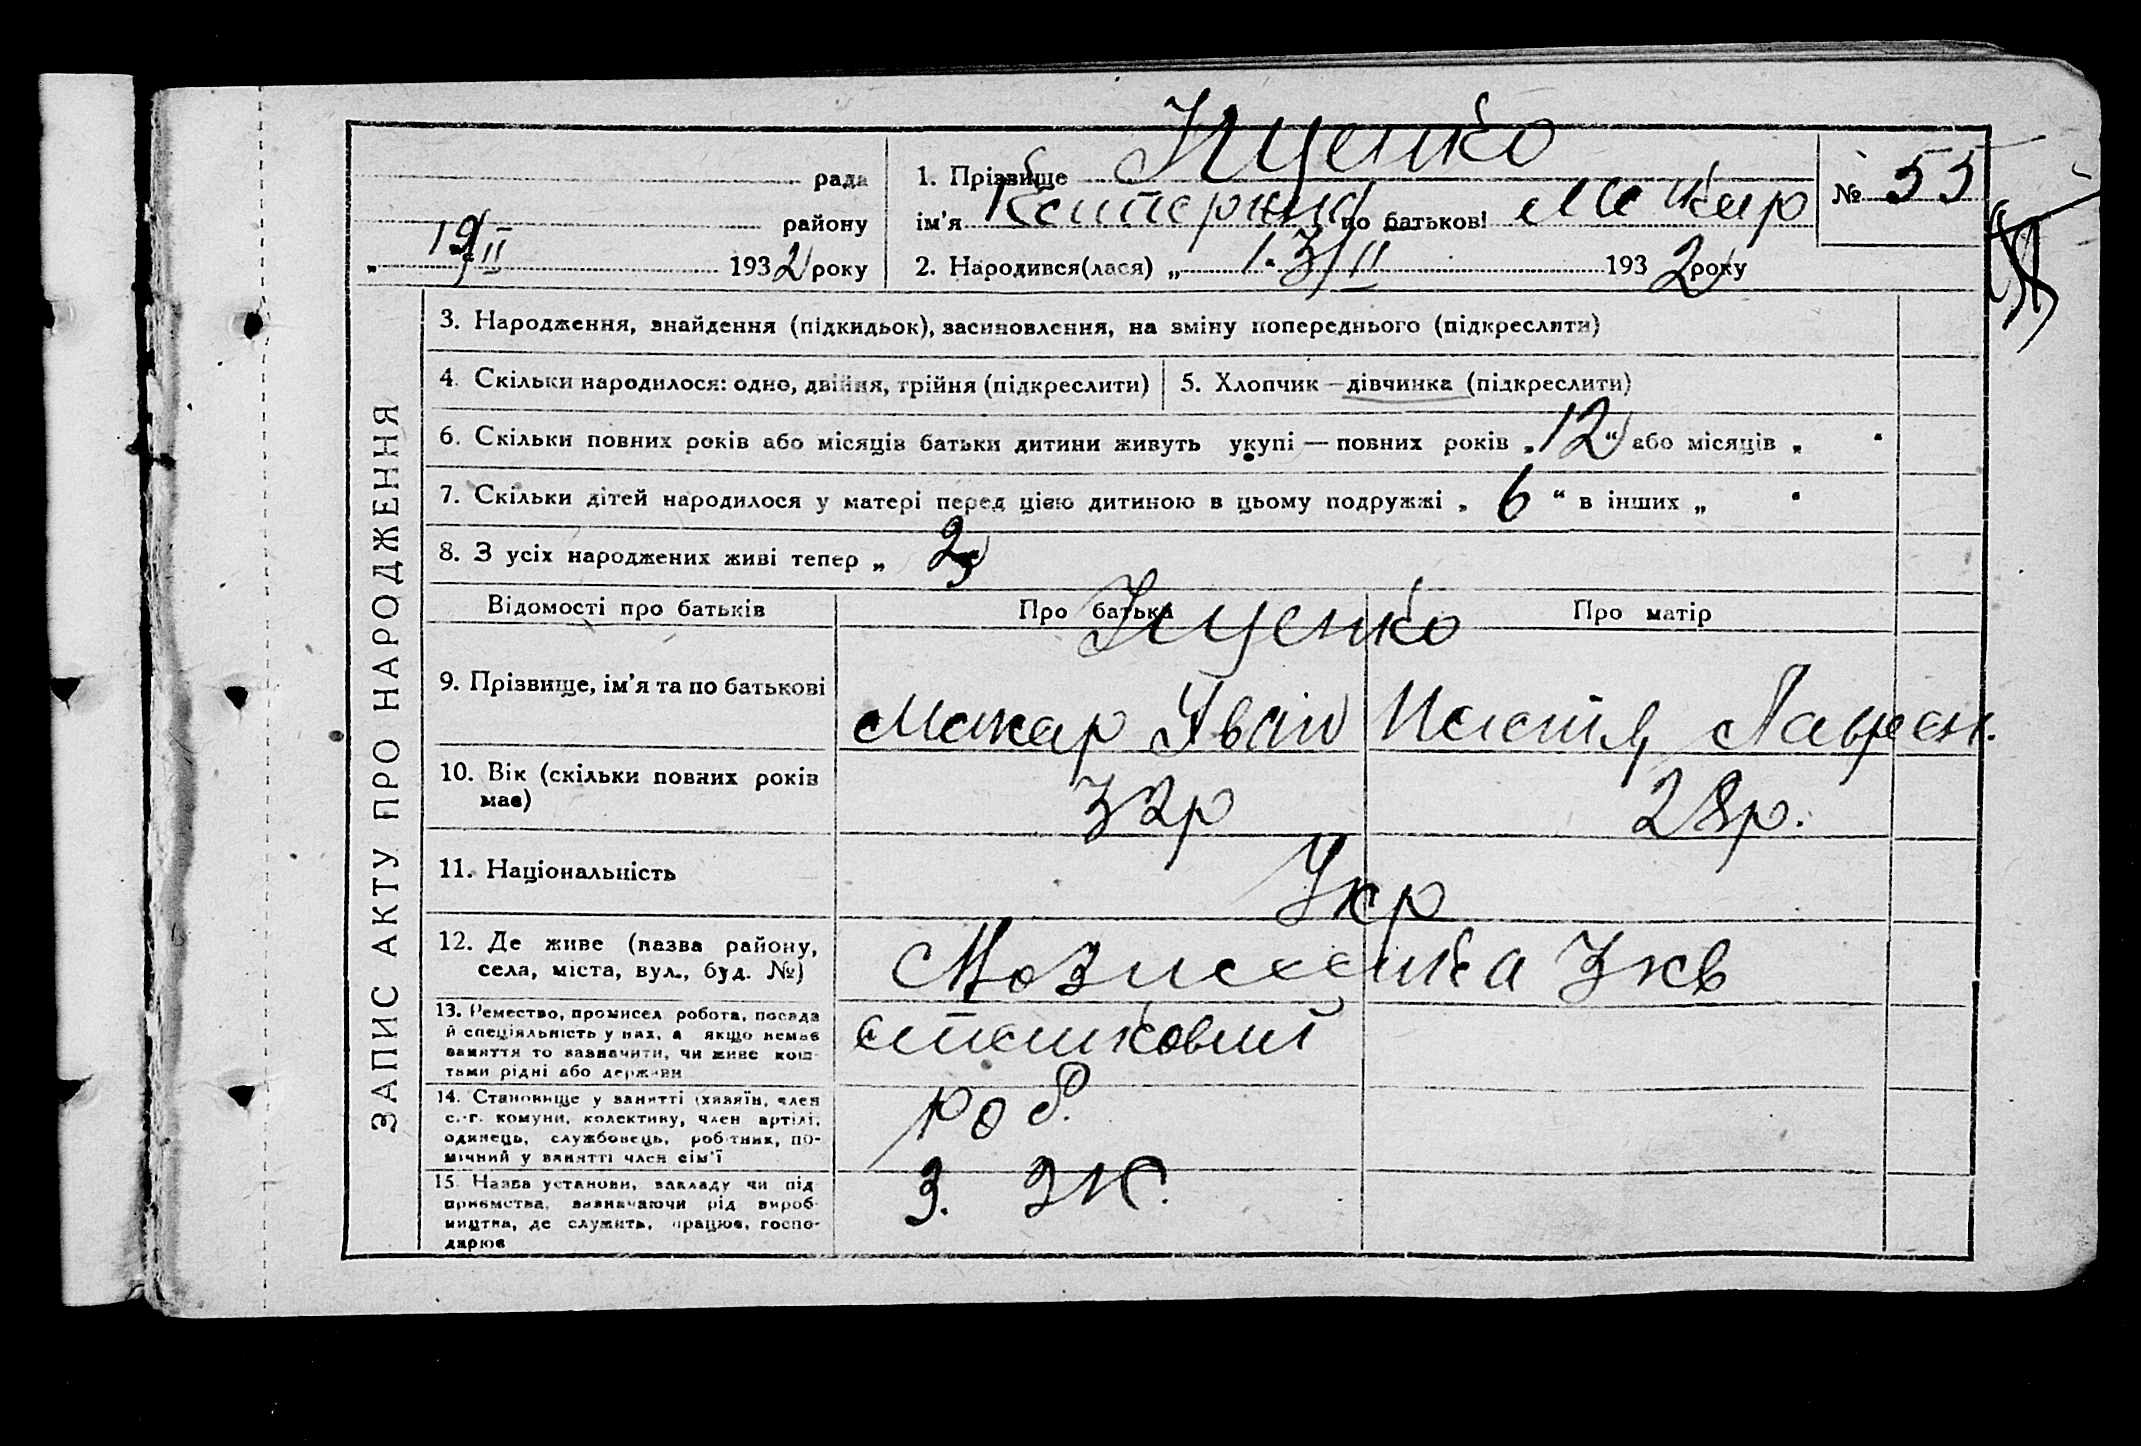 рада
району
19/II 1932 року
1. Прізвище Куценко
ім'я Катерина по батькові Макар
№ 55
2. Народився(лася) „ 13/II 1932 року
ЗАПИС АКТУ ПРО НАРОДЖЕННЯ
3. Народження, знайдення (підкидьок), засиновлення, на зміну попереднього (підкреслити)
4. Скільки народилося: одно, двійня, трійня (підкреслити)
5. Хлопчик — дівчинка (підкреслити)
6. Скільки повних років або місяців батьки дитини живуть укупі — повних років „ 12 “ або місяців „
7. Скільки дітей народилося у матері перед цією дитиною в цьому подружжі „ 6 “ в інших „
8. З усіх народжених живі тепер „
Відомості про батьків
Про батька
Про матір
Куценко
9. Прізвище, ім'я та по батькові
Макар Іван
Настя Лаврен.
10. Вік (скільки повних років має)
32р
28р.
11. Національність
Укр
12. Де живе (назва району,
села, міста, вул., буд. №)
13. Ремество, промисел робота, посада
й спеціяльність у них, а якщо немає
заняття то зазначити, чи живе кош-
тами рідні або держави
14. Становище у занятті (хазяїн, член
с.-г. комуни, колективу, член артілі,
одинець, службовець, робітник, по-
мічний у занятті член сім'ї
роб.
15. Назва установи, закладу чи під-
приємства, зазначаючи рід вироб-
ництва, де служить, працює, госпо-
дарює
З. ЗК.